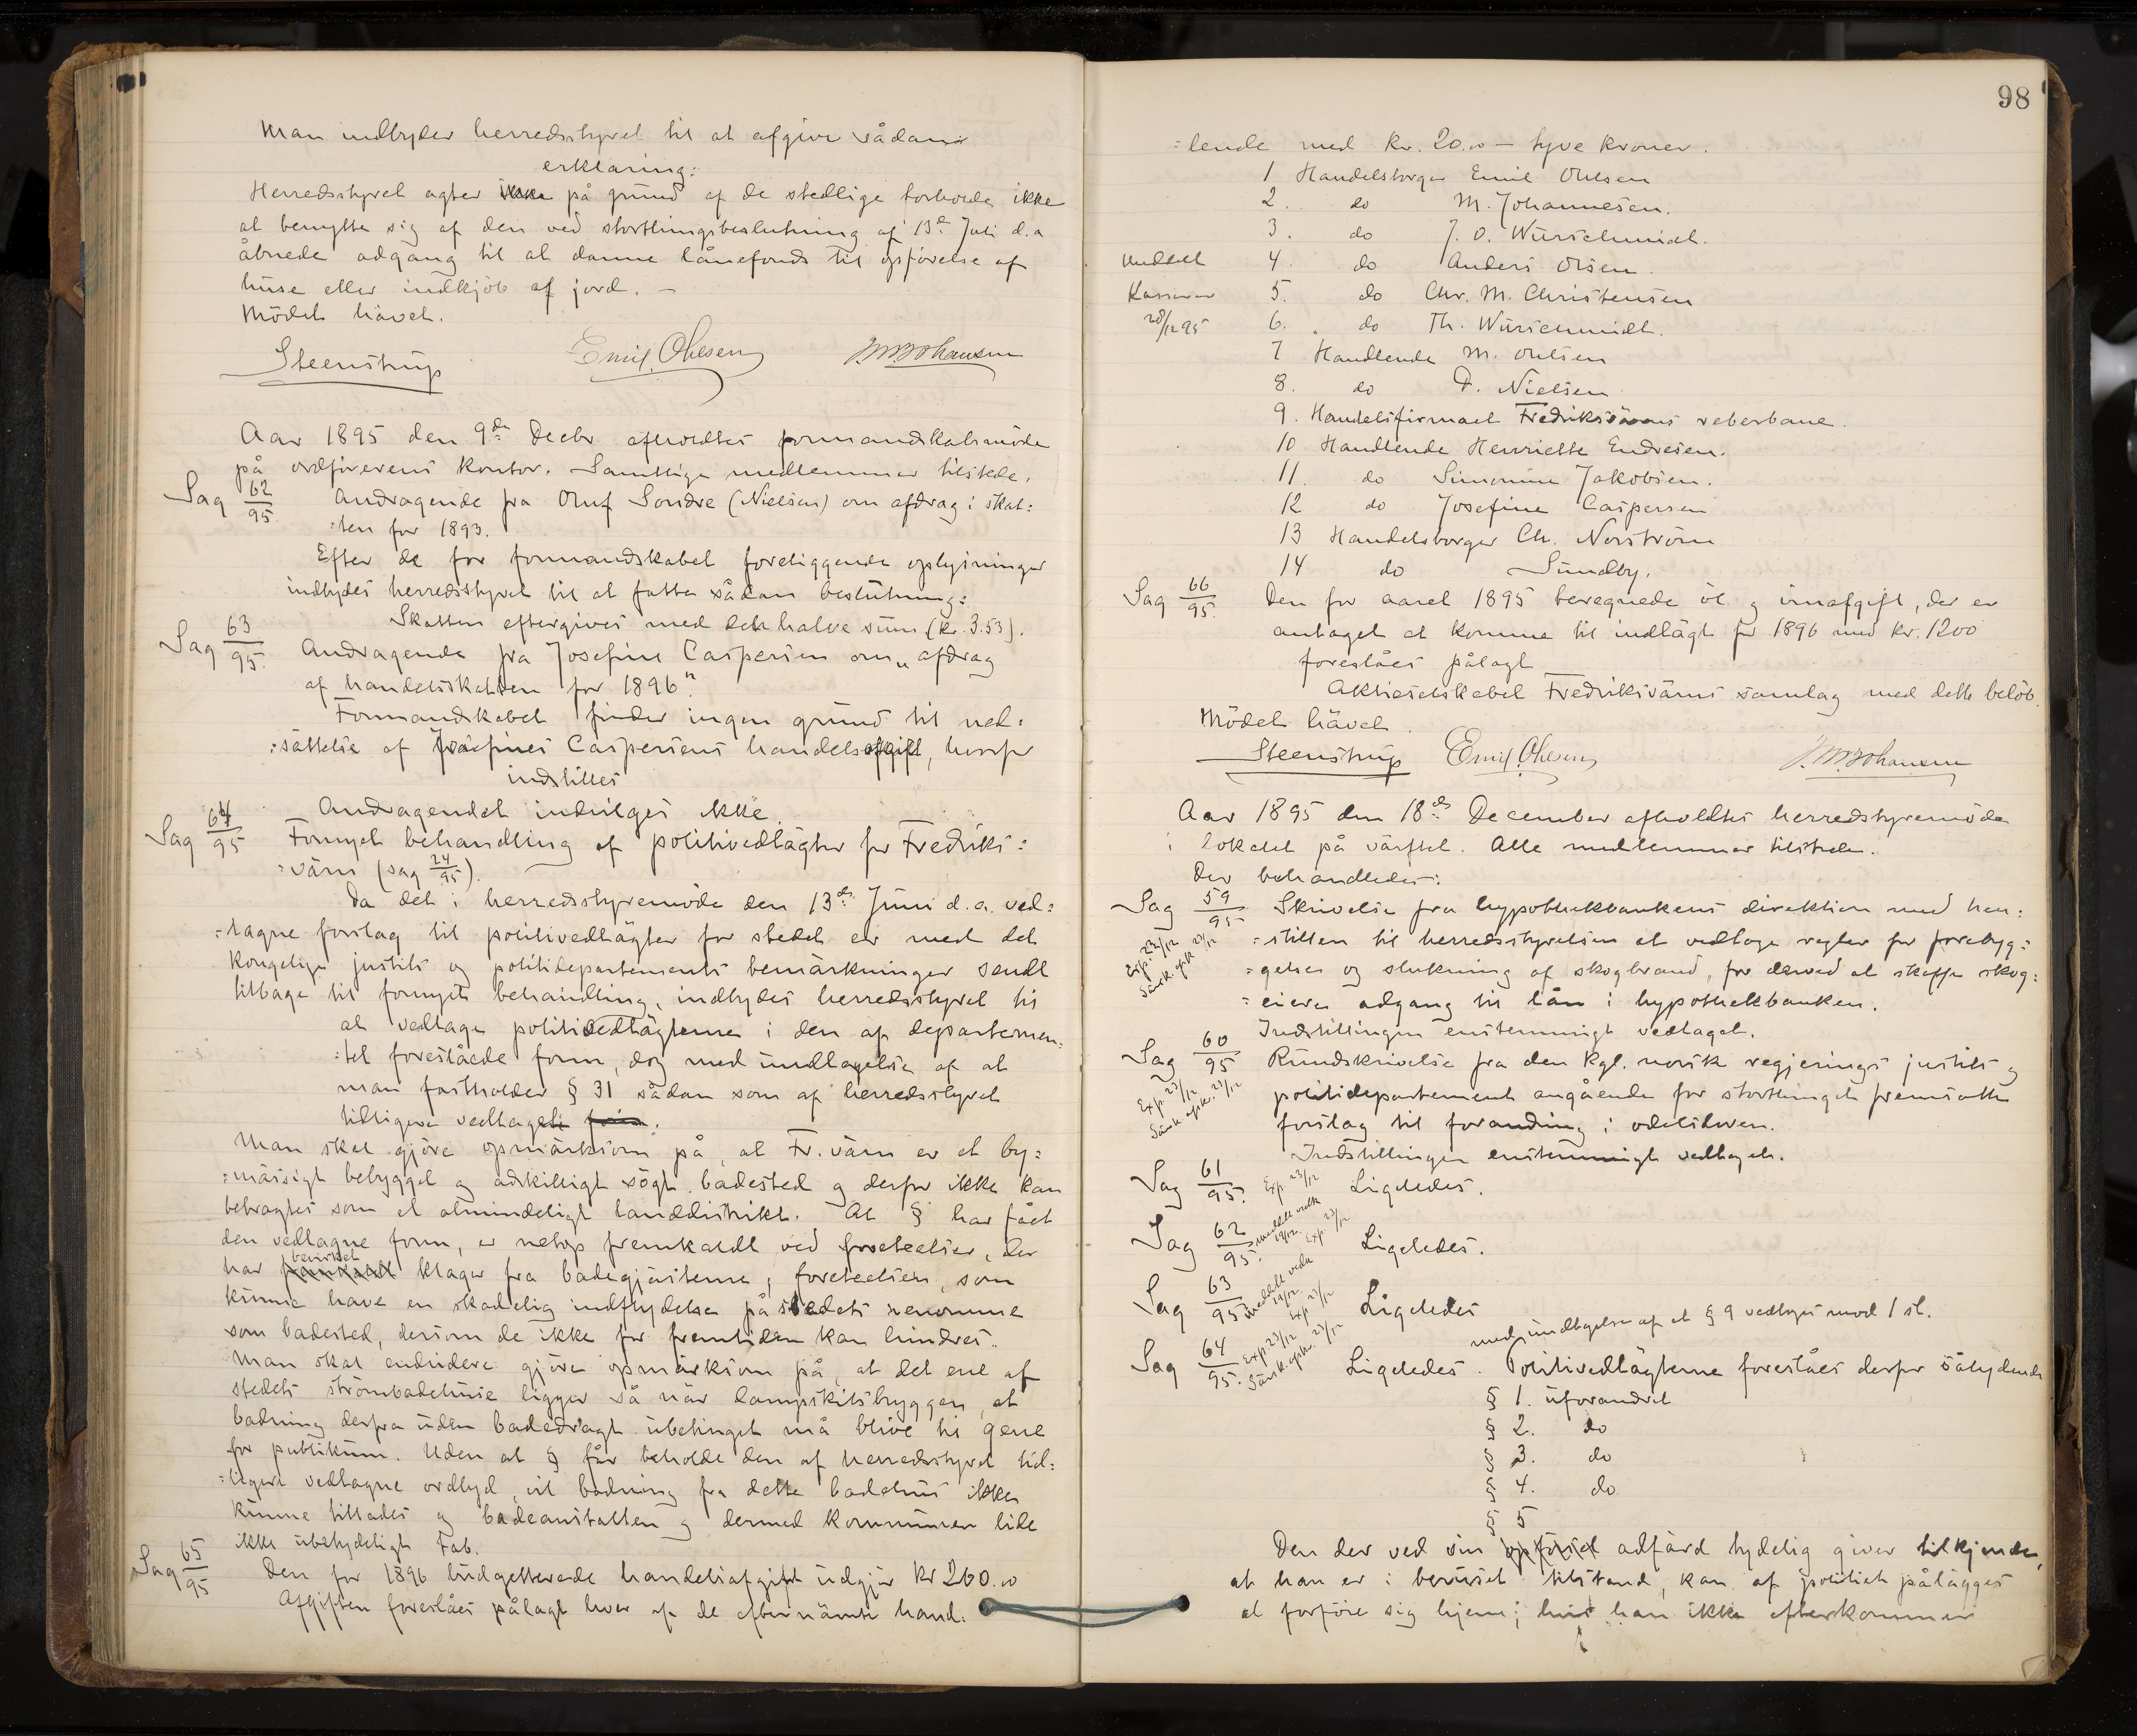 Man indbyder herredsstyret til at afgive sådan
erklæring:
Herredsstyret agter på grund af de stedlige forholde ikke
at benytte sig af den ved storthingsbeslutning af 13de Juli d.a
åbnede adgang til at danne lånefonds til opførelse af
huse eller indkjöb af jord. –
Mödet hävet.
Steenstrup Emil Ohlsen
Aar 1895 den 9de Decbr afholdtes formandskabsmöde
på ordförerens kontor. Samtlige medlemmer tilstede.
Sag 62/95 Andragende fra Oluf Søndre (Nielsen) om afdrag i skat:
:ten for 1893.
Efter de for formandskabet foreliggende oplysninger
indbydes herredsstyret til at fatte sådan beslutning:
Skatten eftergives med det halve sum (kr. 3.53).
Sag 63/95 Andragende fra Josefine Caspersen om „afdrag
af handelsskatten for 1896".
Formandskabet finder ingen grund til ned:
:sättelse af Josefines Caspersens handelsafgift, hvorfor
indstilles
Andragendet indvilges ikke.
Sag 64/95 Fornyet behandling af politivedtägter for Fredriks:
:värn (sag 24/95).
Da det i herredsstyremöde den 13de Juni d.a. ved:
:tagne forslag til politivedtägter for stedet er med det
kongelige justits og politidepartements bemärkninger sendt
tilbage til fornyet behandling, indbydes herredsstyret til
at vedtage politivedtägterne i den af departemen:
:tet foreslåede form, dog med undtagelse af at
man fastholder § 31 sådan som af herredsstyret
tidligere vedtaget.
Man skal gjöre opmärksom på, at Fr.värn er et by:
:mässigt bebygget og adskilligt sögt badested og derfor ikke kan
betragtes som et almindeligt landdistrikt. At § har fået
den vedtagne form, er netop fremkaldt ved foreteelser, der
har bevirket klager fra badegjästerne, foreteelser, som
kunne have en skadelig indflydelse på stedets renomme
som badested, dersom de ikke for fremtiden kan hindres.
Man skal endvidere gjöre opmärksom på, at det ene af
stedets strömbadehuse ligger så när dampskibsbryggen, at
badning derfra uden badedragt ubetinget må blive til gene
for publikum. Uden at § får beholde den af herredsstyret tid:
:ligere vedtagne ordlyd, vil badning fra dette badehus ikke
kunne tillades og badeanstalten og dermed kommunen lide
ikke ubetydeligt Tab.
Sag 65/95 Den for 1896 budgetterede handelsafgift udgjör kr 260.00
Afgiften foreslåes pålagt hver af de efternämte hand:
98
:lende med kr. 20.00 – tyve kroner.
1 Handelsborger Emil Ohlsen
2. do M. Johannesen.
3. do J. O. Würschmidt.
Meddelt 4. do Anders Olsen.
Kasserer 5. do Chr. M. Christensen
28/12 95 6. do Th. Würschmidt.
7 Handlende M. Ohlsen
8. do D. Nielsen
9. Handelsfirmaet Fredriksvärns reberbane.
10 Handlende Henriette Endresen.
11. do Simonine Jakobsen.
12 do Josefine Caspersen
13 Handelsborger Ch. Norström
14 do Sundby.
Sag 66/95. Den for aaret 1895 beregnede öl og vinafgift, der er
antaget at komme til indtägt for 1896 med kr. 1200
foreslåes pålagt
Aktieselskabet Fredriksvärns samlag med dette belöb.
Mödet hävet.
Steenstrup Emil Ohlsen
Aar 1895 den 18de December afholdtes herredsstyremöde
i lokalet på värftet. Alle medlemmer tilstede.
Der behandledes:
Sag 59/95 Skrivelse fra hypothekbankens direktion med hen:
:stillen til herredsstyrelsen at vedtage regler for forebyg:
:gelse og slukning af skogbrand, for derved at skaffe skog:
:eiere adgang til lån i hypothekbanken.
Exp. 23/12
Indstillingen enstemmigt vedtaget.
Sag 60/95 Rundskrivelse fra den kgl. norsk regjerings justits og
politidepartement angående for storthinget fremsatte
forslag til forandring i odelsloven.
Exp. 23/12
Indstillingen enstemmigt vedtaget.
Sag 61/95. Exp. 23/12 Ligeledes.
Sag 62/95. Exp. 23/12 Ligeledes.
Sag 63/95 Exp 23/12 Ligeledes
med undtagelse af at § 9 vedtages mod 1 st.
Sag 64/95. Exp. 23/12 Ligeledes. Politivedtägterne foreslåes derfor sålydende
§ 1. uforandret
§ 2. do
§ 3. do
§ 4. do
§ 5
Den der ved sin opförsel adfärd tydelig giver tilkjende,
at han er i beruset tilstand, kan af politiet pålägges
at forföie sig hjem; hvis han ikke efterkommer